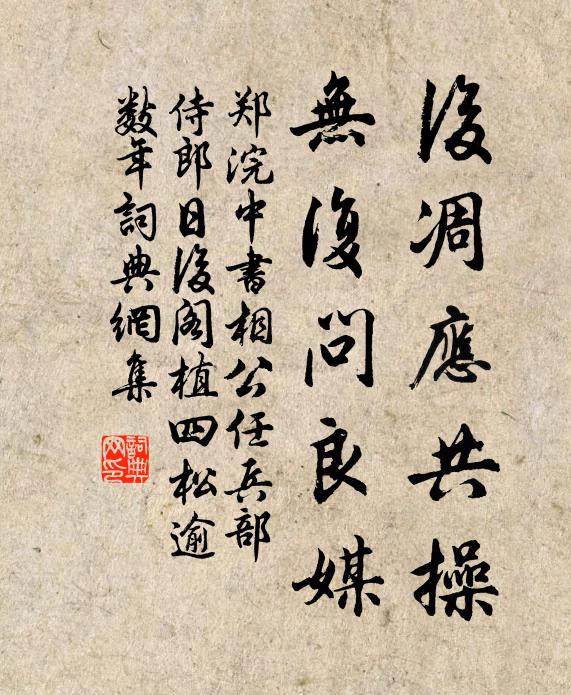 後凋應共操
無復問良媒
郑浣中書相公任兵部
侍郎日後阁植四松逾
数年詞典網集
詞典
网印